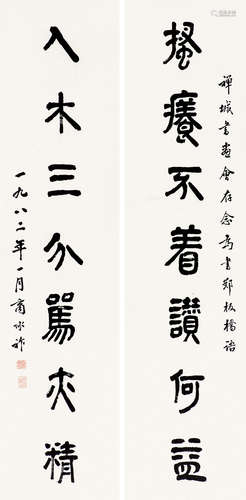 搔癢不着讚何益
入木三分罵亦精
禅城書画會存念為書郑板橋語
一九八二年一月商承祚